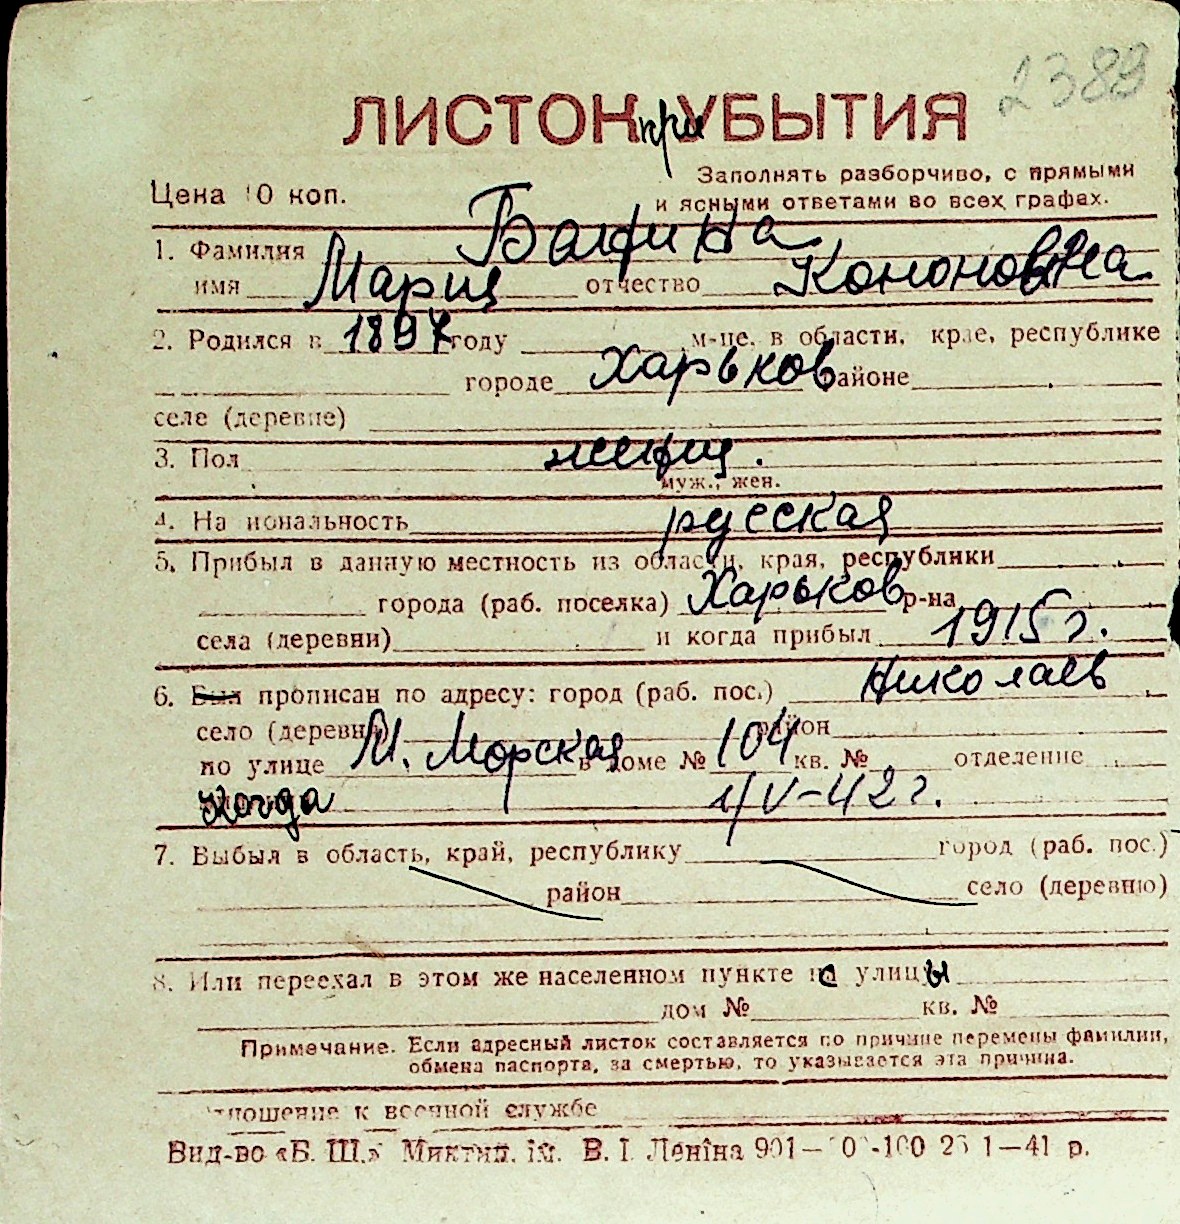 2389
ЛИСТОК при УБЫТИЯ
Заполнять разборчиво, с прямыми
Цена 10 коп. и ясными ответами во всех графах.
1. Фамилия
имя Мария отчество Кононовна
2. Родился в 1897 году м-це, в области, крае, республике
городе Харьков районе
селе (деревне)
3. Пол женщ.
муж., жен.
4. На иональность русская
5. Прибыл в данную местность из области, края, республики
города (раб. поселка) Харьков р-на
села (деревни) и когда прибыл 1915 г.
6. Был прописан по адресу: город (раб. пос.) Николаев
село (деревня) район
по улице М. Морская в доме № 104 кв. № отделение
Когда 1/V-42 г.
7. Выбыл в область, край, республику город (раб. пос.)
район село (деревню)
8. Или переехал в этом же населенном пункте с улицы
дом № кв. №
Примечание. Если адресный листок составляется по причине перемены фамилии,
обмена паспорта, за смертью, то указывается эта причина.
тношение к военной службе
Вид-во «Б. Ш.» Миктип. ім. В. І. Леніна 901— 1—41 р.